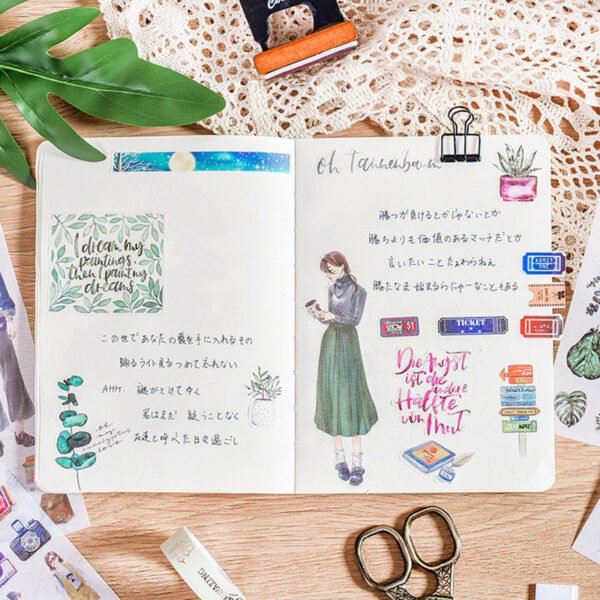 I dream my
paintings,
then I paint my
dreams
この世であなたの愛を手に入れるもの
踊るライト見るつめて忘れない
AHH. 謎がとけてゆく
君はまだ 疑うことなく
友達と呼べた日々過ごし
oh
my
love
oh Tannenbaum
勝つが負けるとかじゃないとか
勝ちよりも価値のあるマッチだとか
言いたいこと
勝たなま 始まるらにゃーなこともある
ADMIT
ONE
SHOW
$1
TICKET
Die Angst
ist die
andere
Hälfte
von Mut
SUBWAY
AMAZING